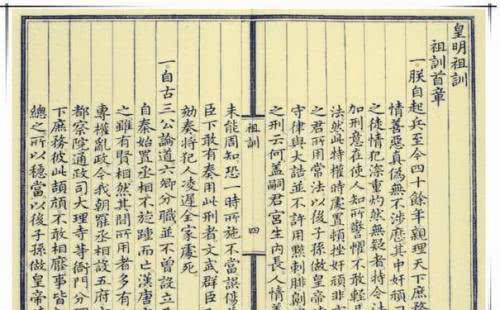 皇明祖訓
祖訓首章
一朕自起兵至今四十餘年親理天下庶務
情善惡真偽無不涉歷其中奸頑刁
之徒情犯深重灼然無疑者特令法
加刑意在使人知所警懼不敢輕易
法然此特權時處置頓挫奸頑非
之君所用常法以後子孫做皇帝
守律與大誥並不許用黥刺腓劓
之刑云何蓋嗣君宮生內長人情善
未能周知恐一時所施不當誤傷
祖訓
四
臣下敢有奏用此刑者文武群臣
劾奏將犯人凌遲全家處死
一自古三公論道六卿分職並不曾設立
自秦始置丞相不旋踵而亡漢唐
之雖有賢相然其間所用者多有
專權亂政今我朝罷丞相設五府六
都察院通政司大理寺等衙門分
下庶務彼此頡頏不敢相壓事皆
總之所以穩當以後子孫做皇帝